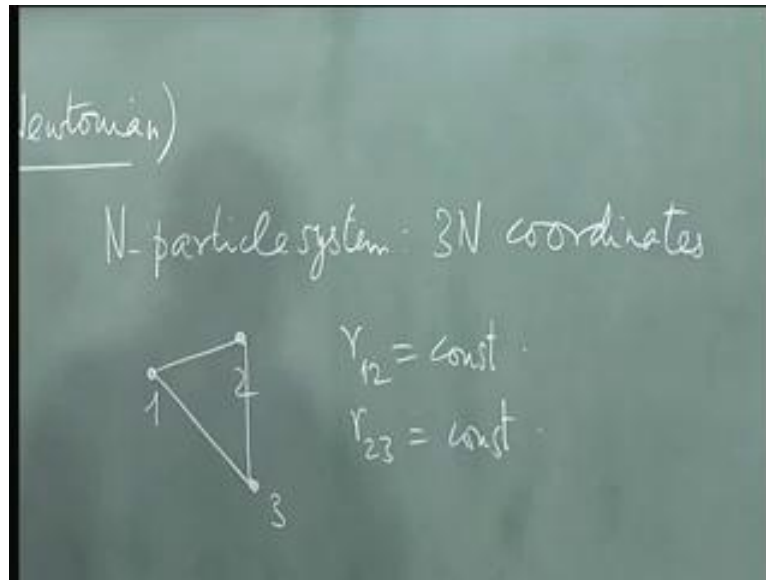 Newtonian)
N-particle system: 3N coordinates
r₁₂ = const.
1
2
r₂₃ = const.
3